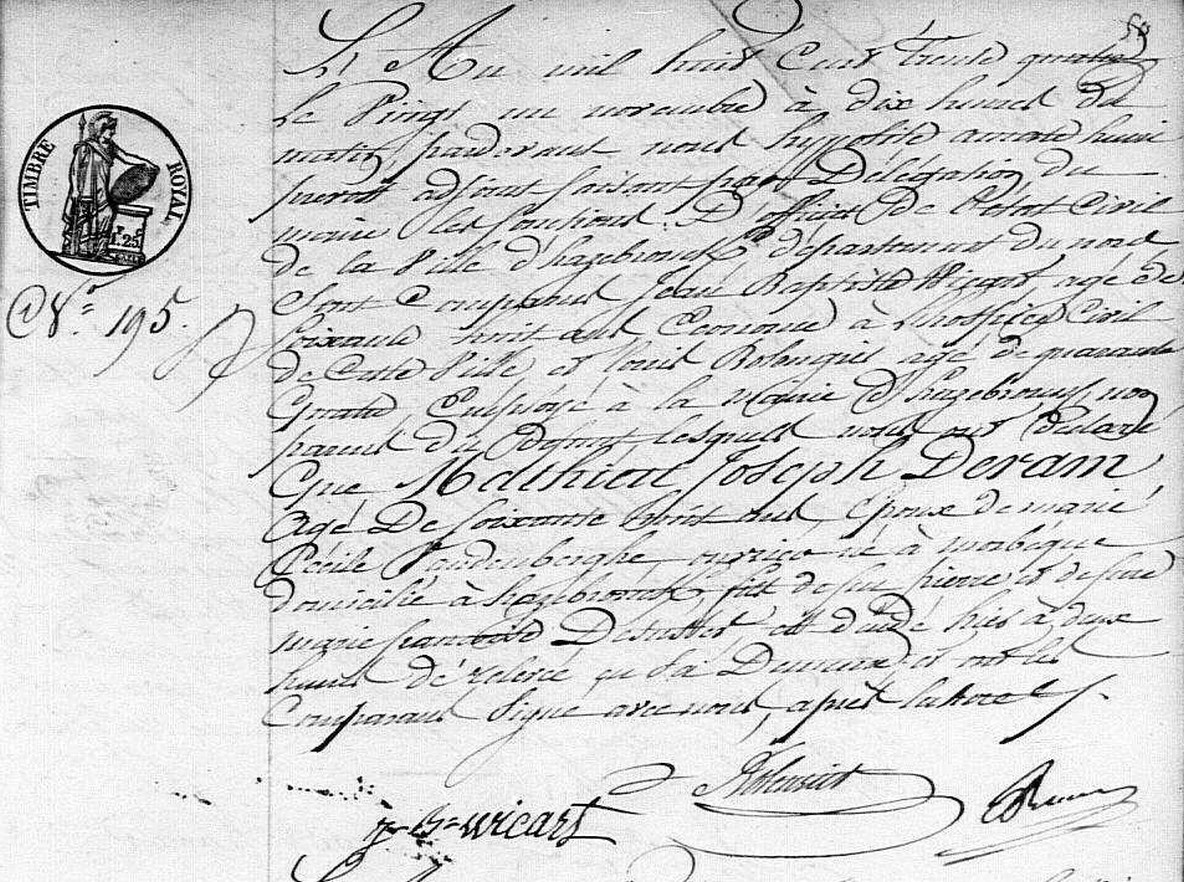 58
L'An mil huit Cent trente quatre
le Vingt un novembre à dix heures du
matin, pardevant nous hyppolite amand
adjoint faisant par Délégation du
maire les fonctions D'officier De l'état Civil
de la Ville d'hazebrouck département du nord
Sont Comparus Jean Baptiste Wicart agé de
Soixante huit ans Econome à l'hospice Civil
de Cette Ville et louis agé de quarante
quatre, Employé à la Mairie D'hazebrouck, non
parens du défunt lesquels nous ont déclaré
Que Mathieu Joseph Deram
Agé De soixante huit ans, Epoux de marie
Cécile Vandenberghe, ouvrier né à morbeque
domicilié à hazebrouck, fils de feu pierre et de feue
marie francoise est décédé hier à deux
heures de relevé en Sa Demeure et ont les
Comparans Signé avec nous, après lecture
TIMBRE ROYAL
1F 25C
N.° 195.
J- Bte wicart